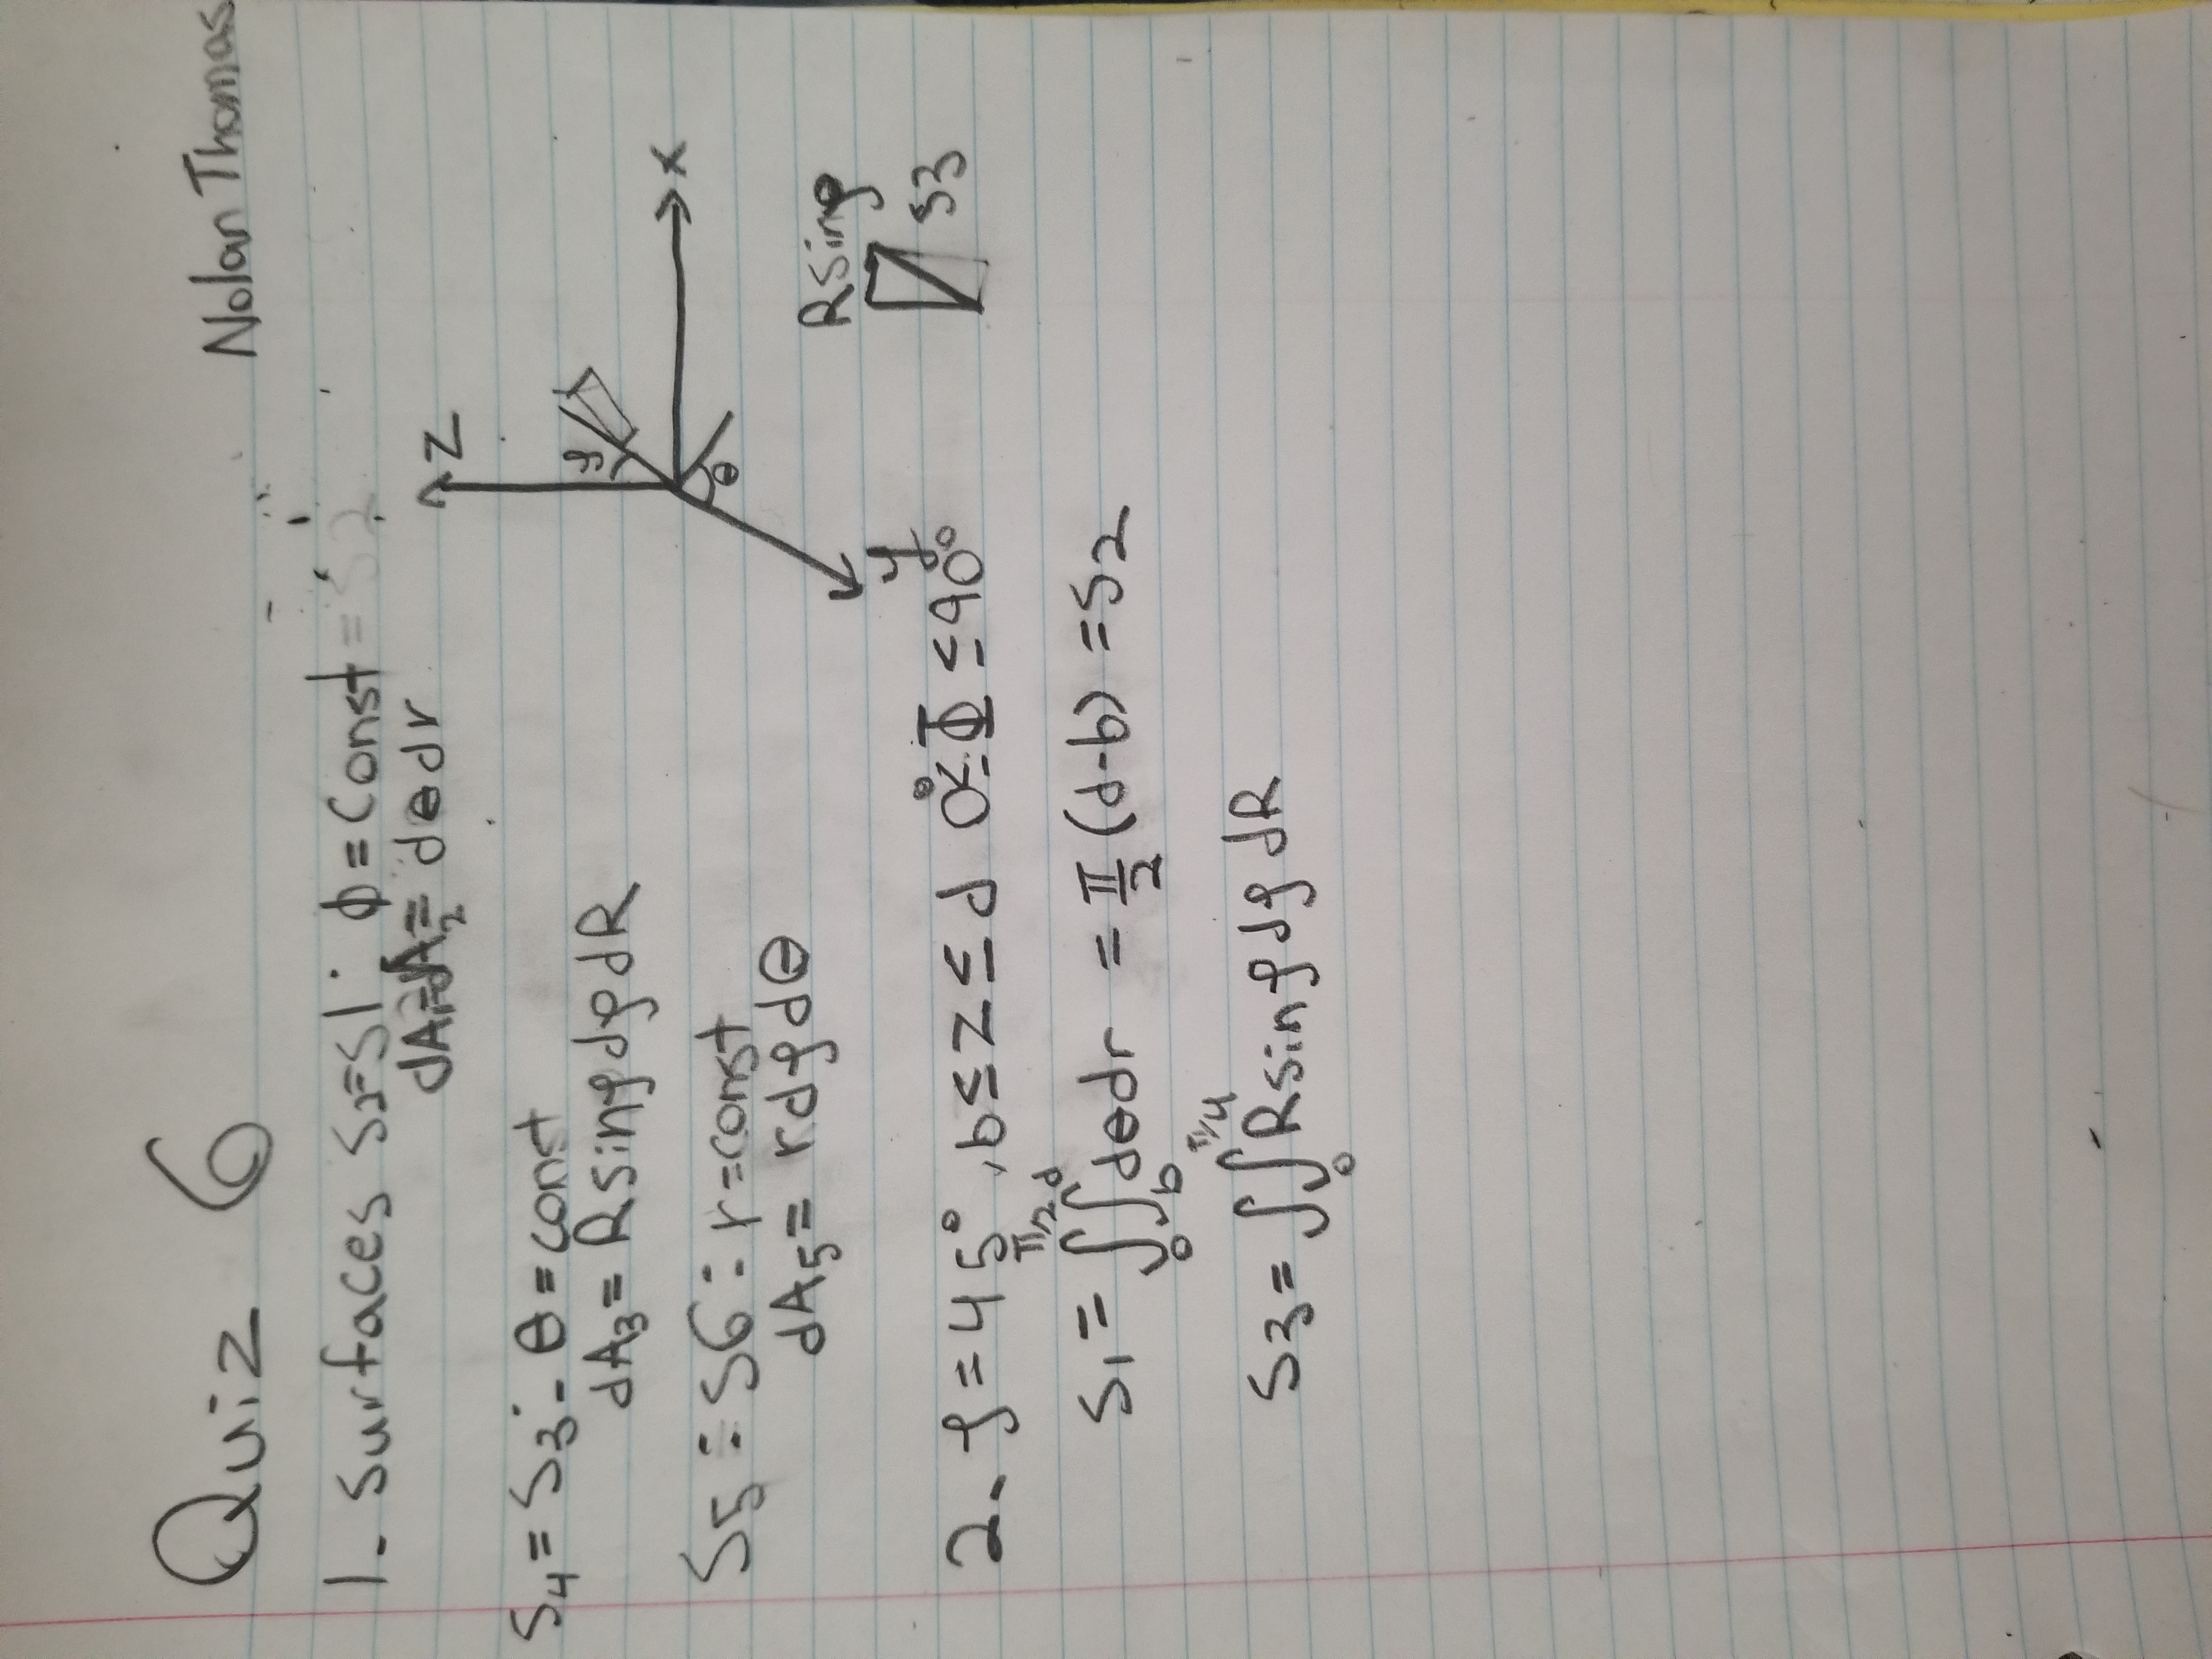 Quiz 6
Nolan Thomas
1. Surfaces S2=S1: ϕ = Const = S2
dA1=dA2= dθdr
S4 = S3: θ = const
dA3 = Rsinφdφ dR
S5 = S6: r=const
dA5 = rdφdθ
Z
φ
X
θ
y
Rsinφ
S3
2. φ = 45°, b≤Z≤d 0°≤Φ≤90°
S1 = ∫₀^π/2 ∫_b^d dθdr = π/2 (d-b) = S2
S3 = ∫∫₀^π/4 Rsinφdφ dR